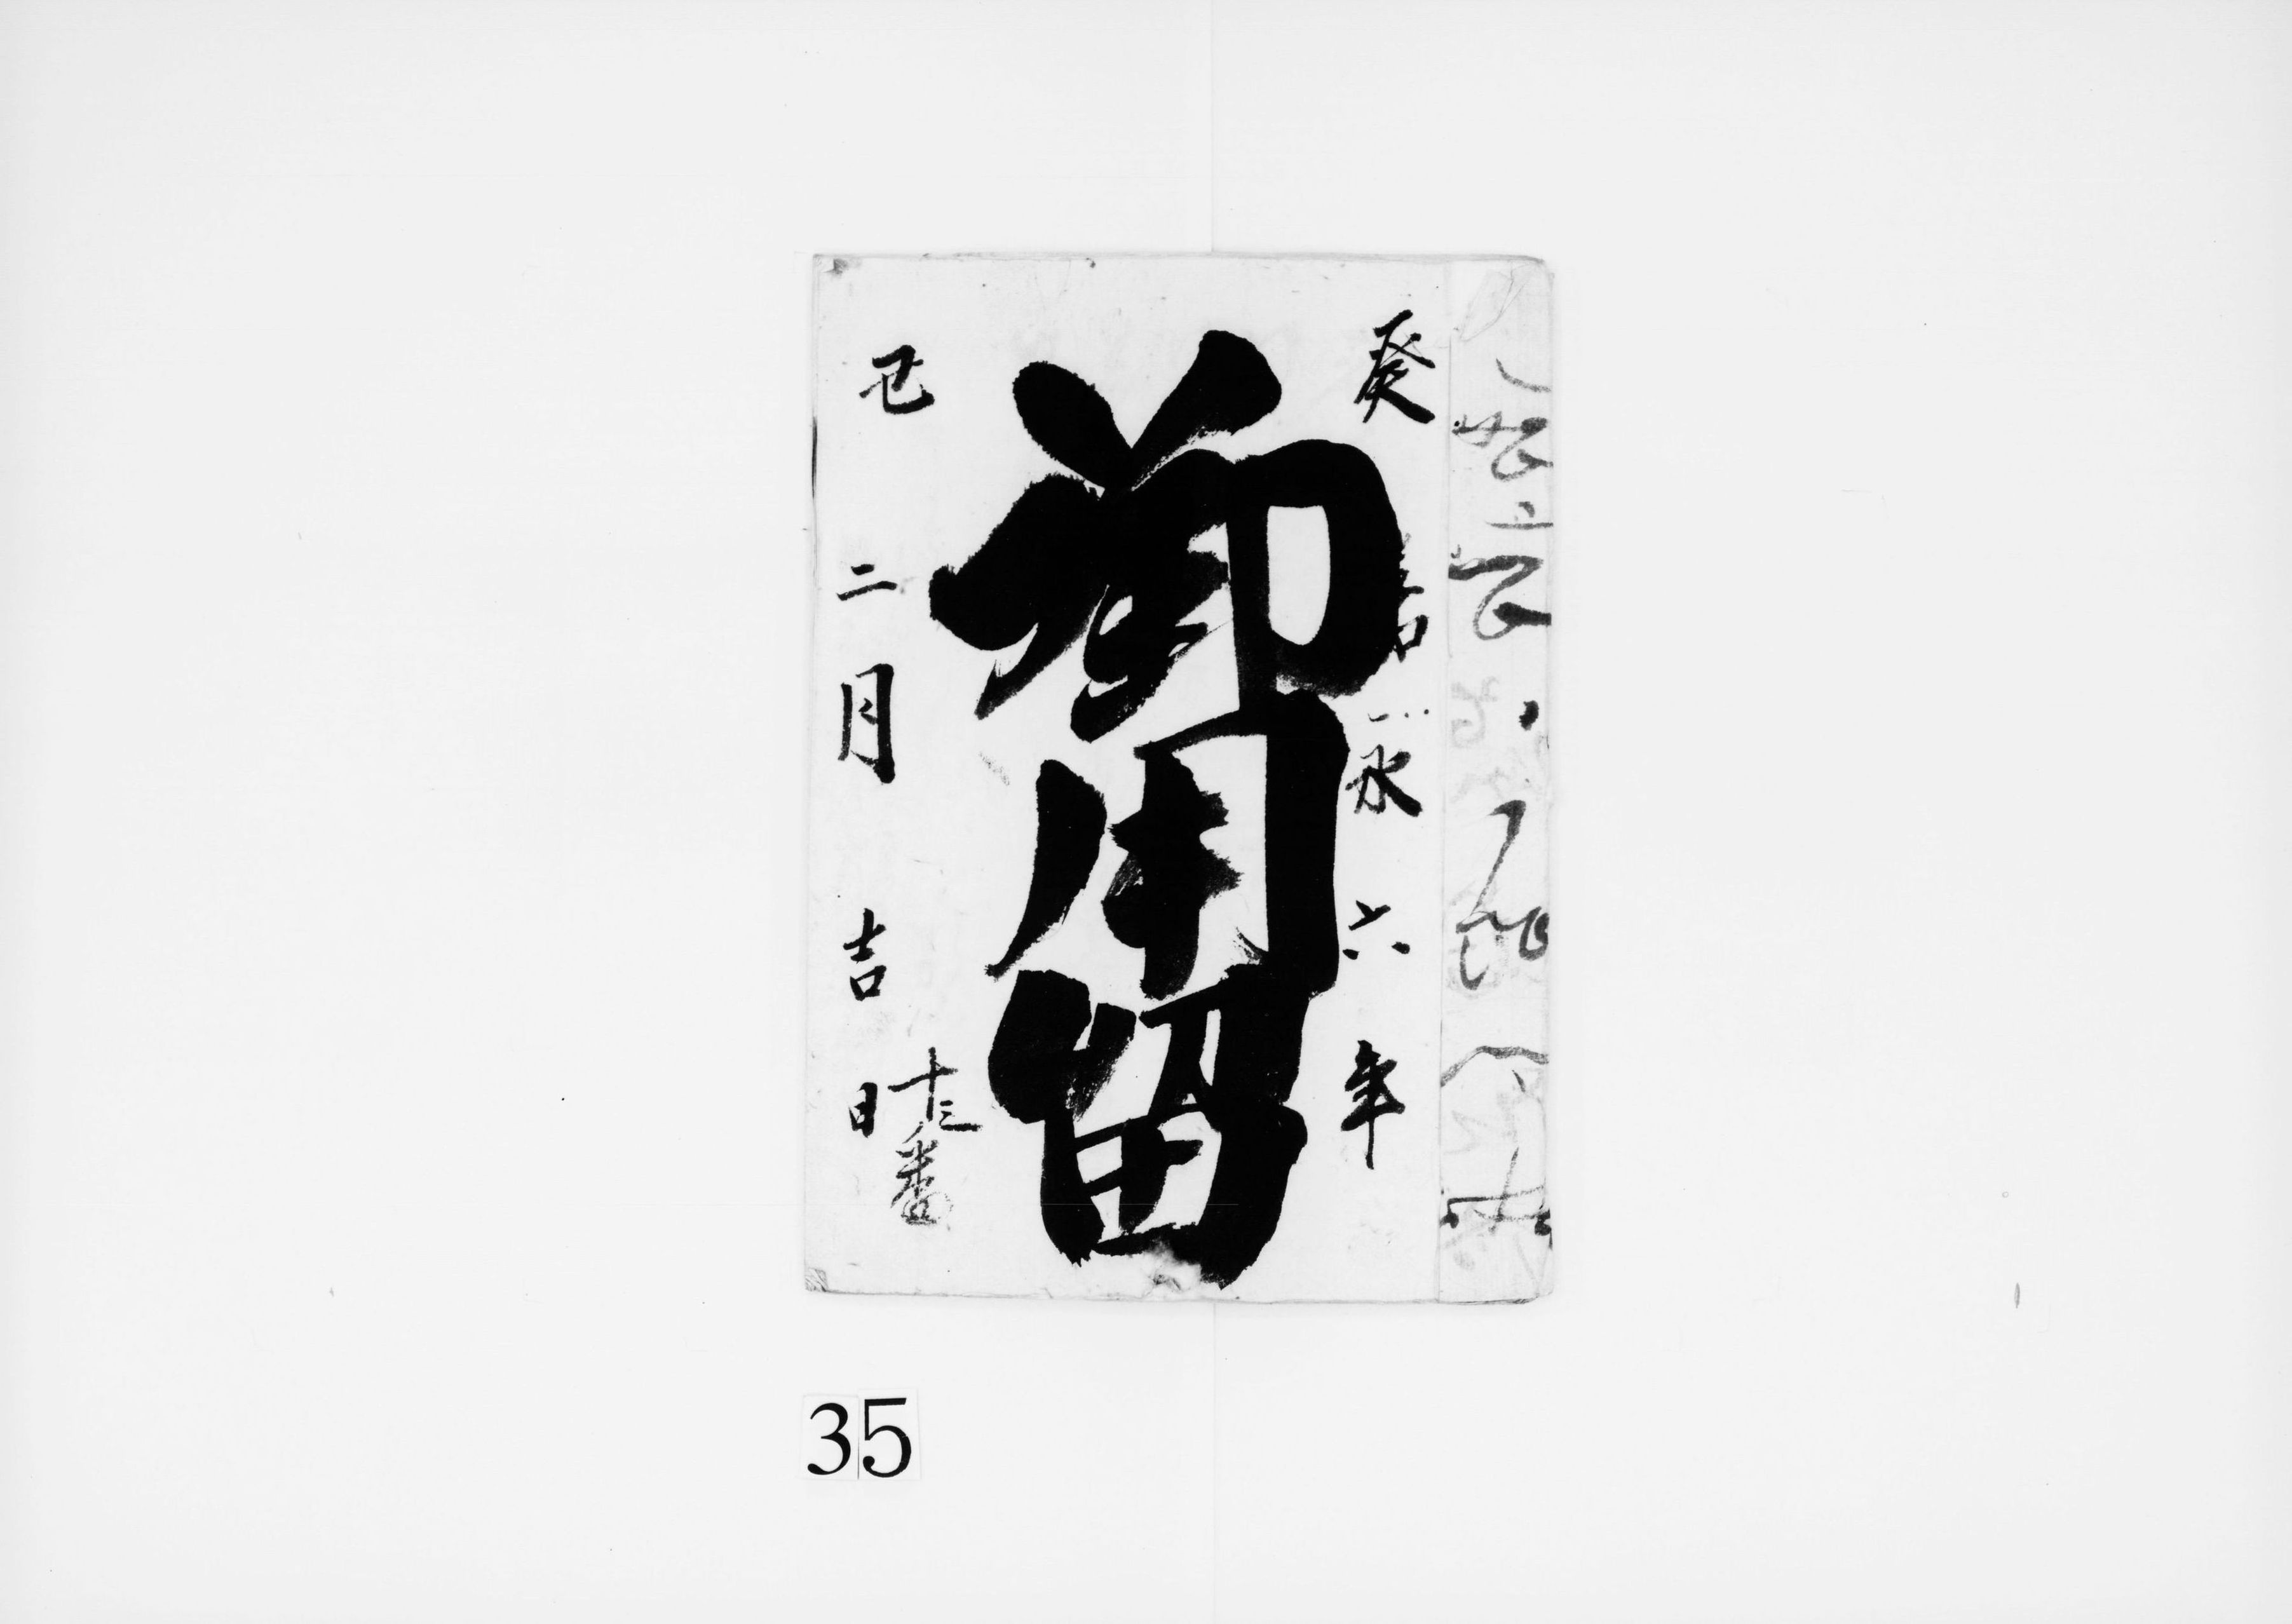 癸
嘉永六年
御用留
巳
二月吉日
十三番
35